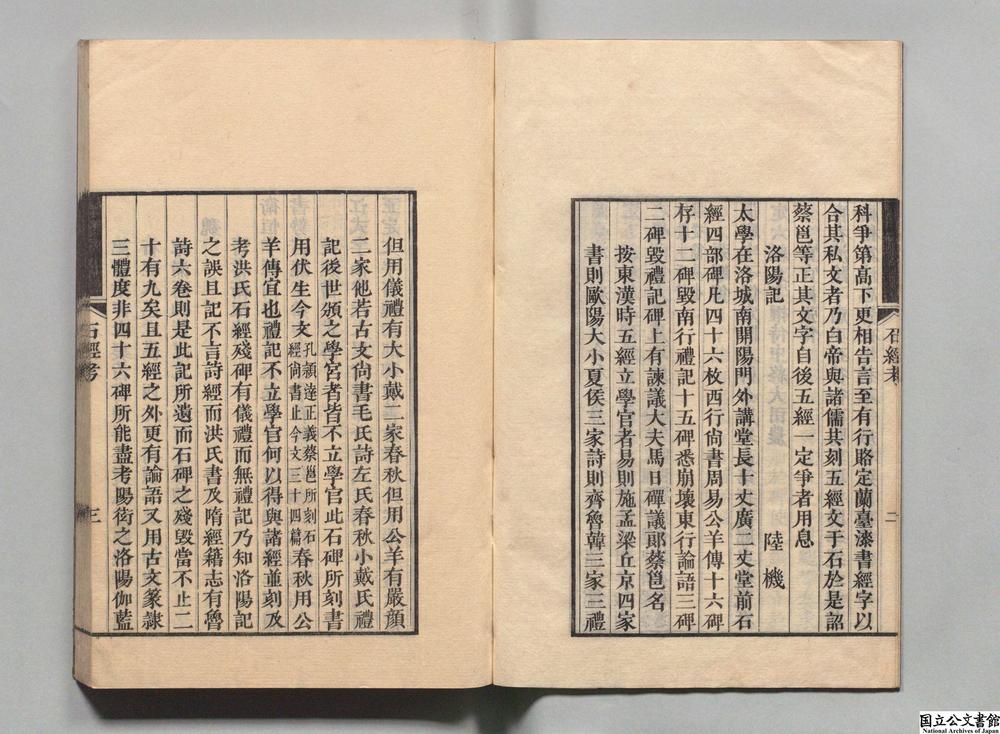 科爭第高下更相告言至有行賂定蘭臺漆書經字以
合其私文者乃白帝與諸儒其刻五經文于石於是詔
蔡邕等正其文字自後五經一定爭者用息
洛陽記 陸機
太學在洛城南開陽門外講堂長十丈廣二丈堂前石
經四部碑凡四十六枚西行尙書周易公羊傳十六碑
存十二碑毀南行禮記十五碑悉崩壞東行論語三碑
二碑毀禮記碑上有諫議大夫馬日磾議郞蔡邕名
按東漢時五經立學官者易則施孟梁丘京四家
書則歐陽大小夏侯三家詩則齊魯韓三家三禮
石經考
二
但用儀禮有大小戴二家春秋但用公羊有嚴顏
二家他若古文尙書毛氏詩左氏春秋小戴氏禮
記後世頒之學宮者皆不立學官此石碑所刻書
用伏生今文孔穎達正義蔡邕所刻石經尙書止今文三十四篇春秋用公
羊傳宜也禮記不立學官何以得與諸經並刻及
考洪氏石經殘碑有儀禮而無禮記乃知洛陽記
之誤且記不言詩經而洪氏書及隋經籍志有魯
詩六卷則是此記所遺而石碑之殘毀當不止二
十有九矣且五經之外更有論語又用古文篆隸
三體度非四十六碑所能盡考陽衒之洛陽伽藍
石經考
三
国立公文書館
National Archives of Japan